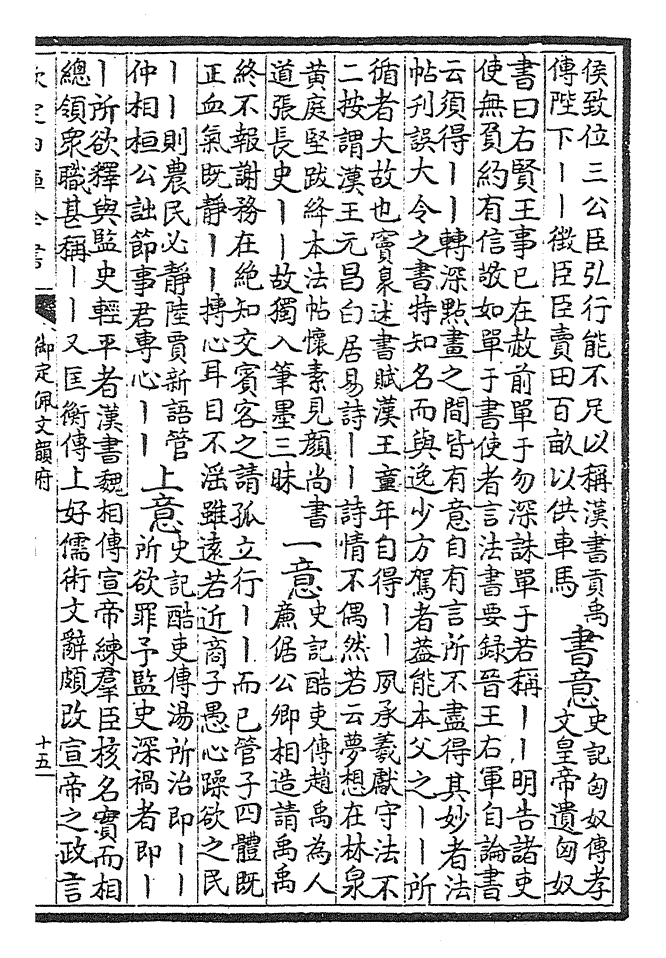 侯致位三公臣弘行能不足以稱漢書貢禹
傳陛下丨丨徵臣臣賣田百畝以供車馬
書意
史記匈奴傳孝
文皇帝遺匈奴
書曰右賢王事已在赦前單于勿深誅單于若稱丨丨明告諸吏
使無負約有信敬如單于書使者言法書要録晉王右軍自論書
云須得丨丨轉深點畫之間皆有意自有言所不盡得其妙者法
帖刋誤大令之書特知名而與逸少方駕者蓋能本父之丨丨所
循者大故也竇臮述書賦漢王童年自得丨丨夙承羲獻守法不
二按謂漢王元昌白居易詩丨丨詩情不偶然若云夢想在林泉
黄庭堅跋絳本法帖懷素見顔尚書
道張長史丨丨故獨入筆墨三昧
一意
史記酷吏傳趙禹為人
廉倨公卿相造請禹禹
終不報謝務在絶知交賓客之請孤立行丨丨而已管子四體既
正血氣既靜丨丨摶心耳目不淫雖遠若近商子愚心躁欲之民
丨丨則農民必靜陸賈新語管
仲相桓公詘節事君專心丨丨
上意
史記酷吏傳湯所治即丨丨
所欲罪予監史深禍者即丨
丨所欲釋與監史輕平者漢書魏相傳宣帝練羣臣核名實而相
總領衆職甚稱丨丨又匡衡傳上好儒術文辭頗改宣帝之政言
欽定四庫全書
御定佩文韻府
十五